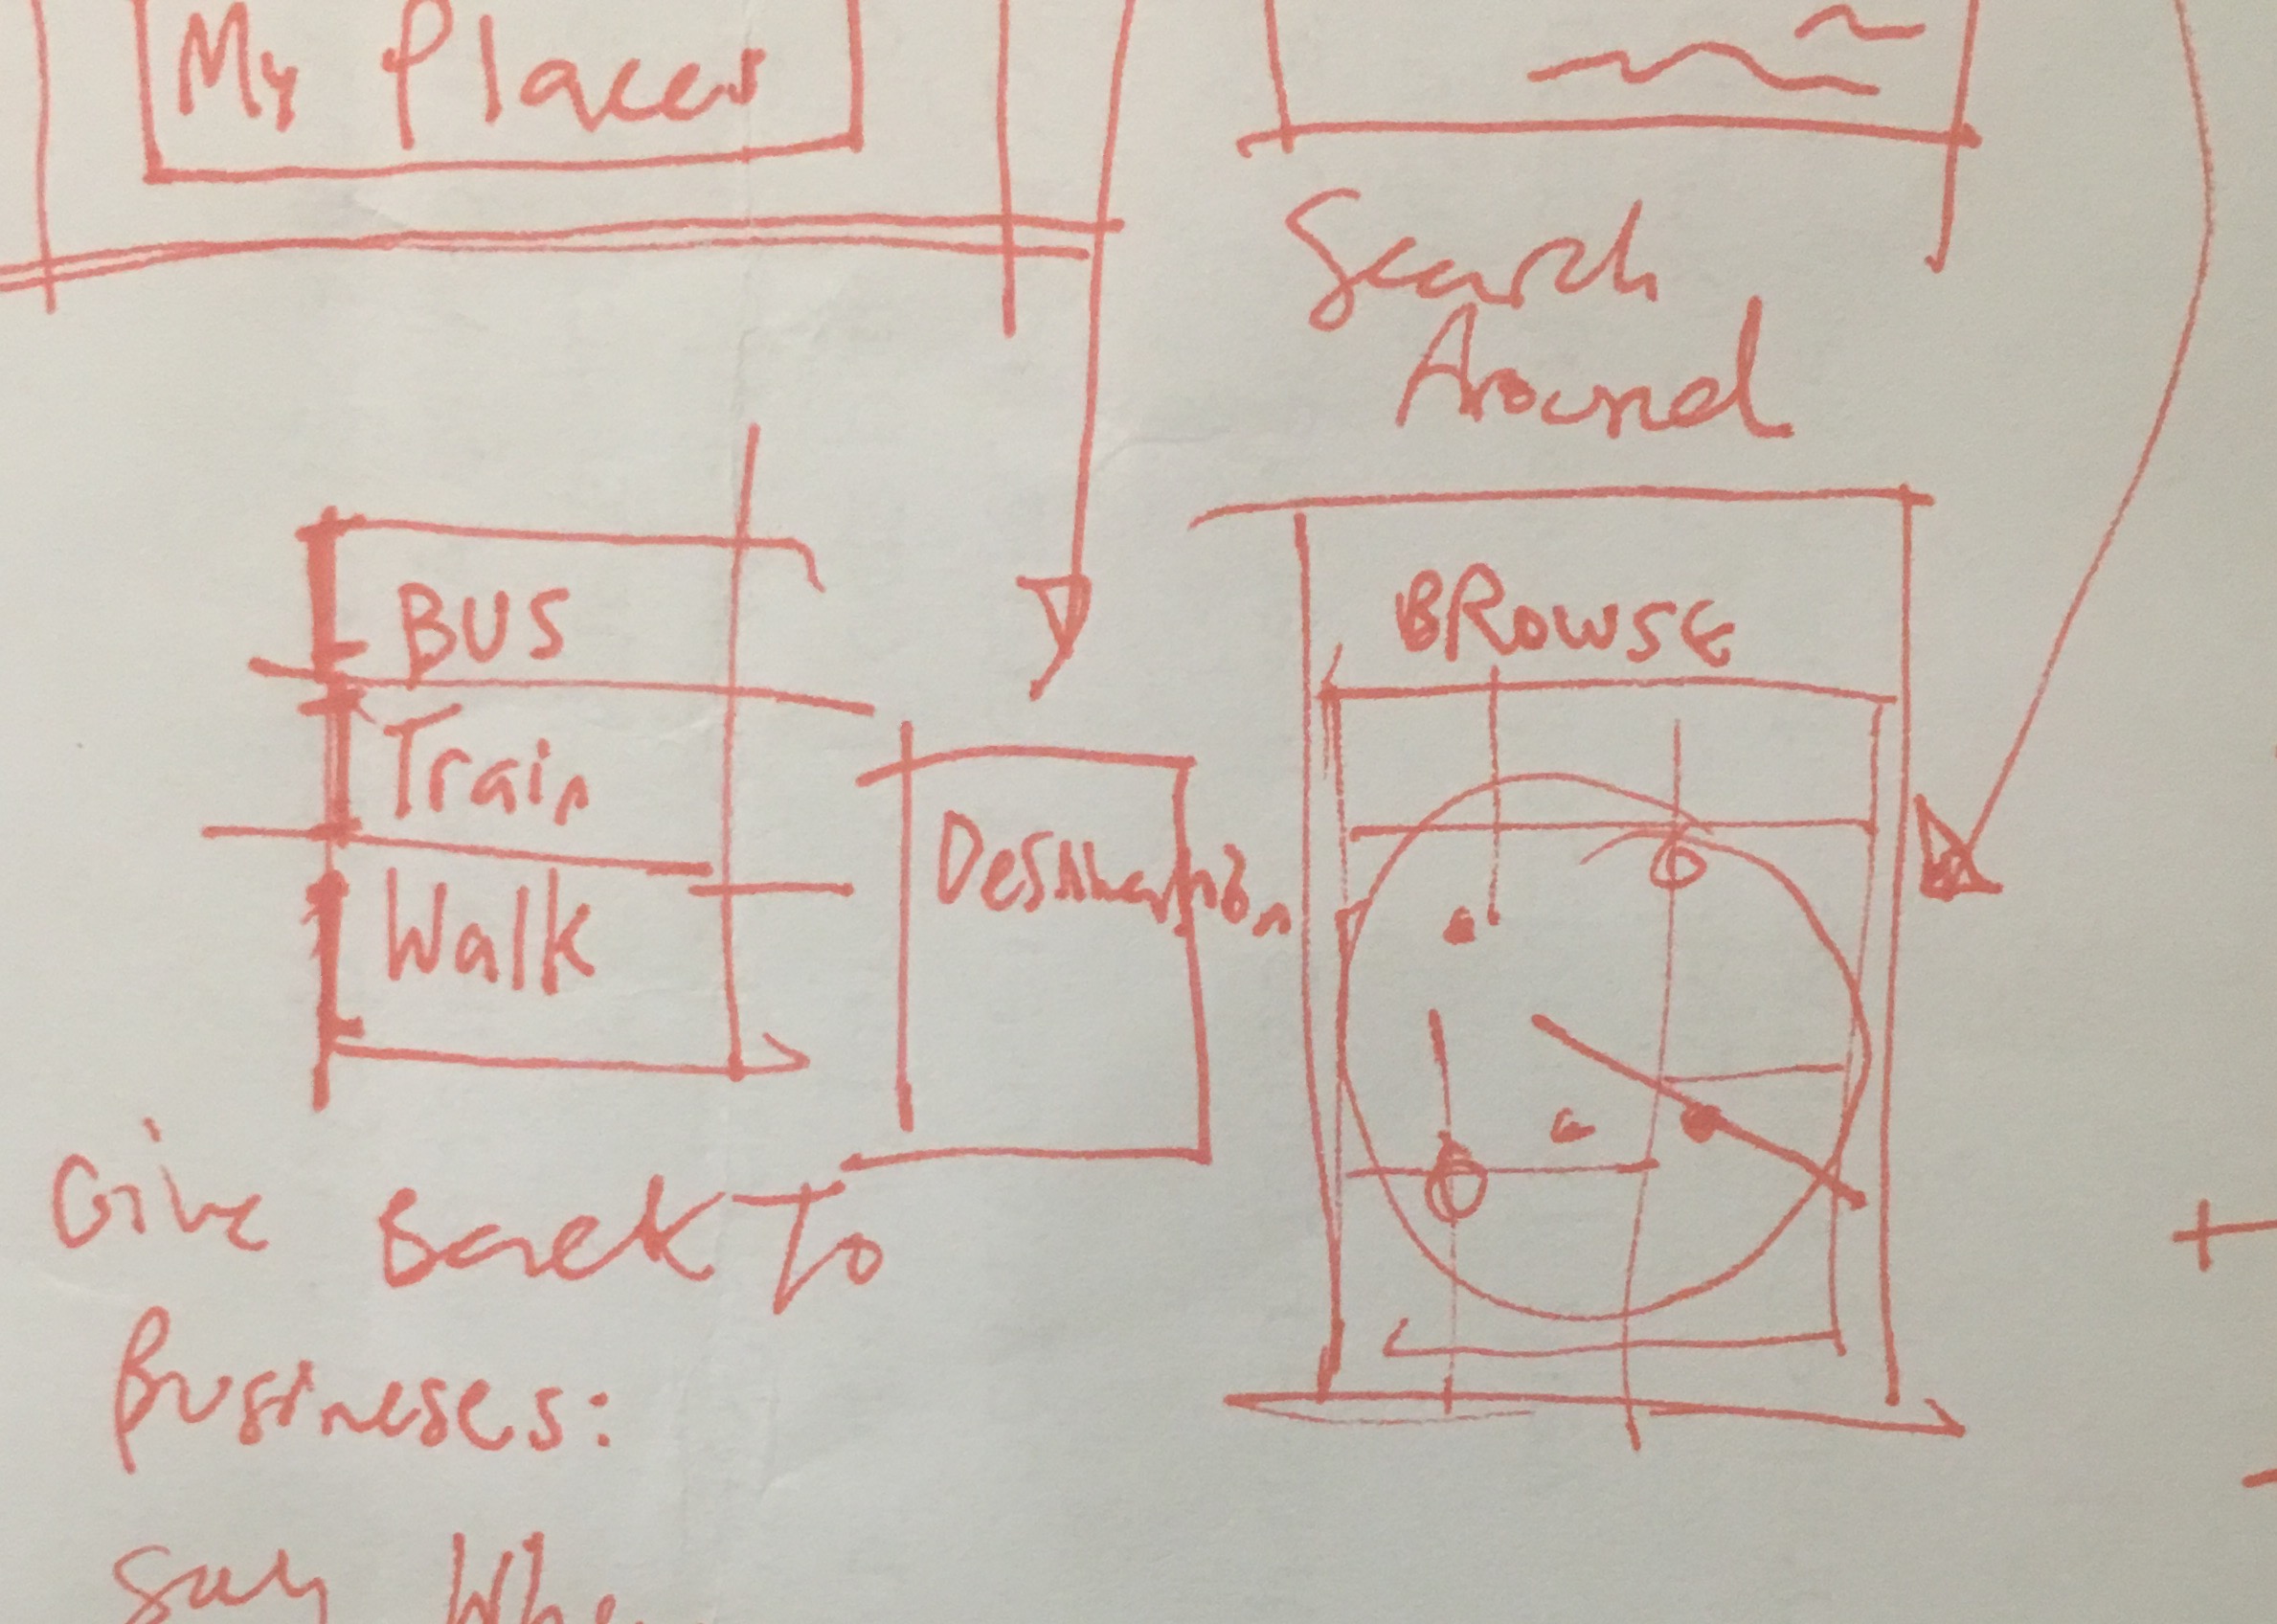 My Places
Search
Around
BUS
Train
Walk
Destination
BROWSE
Give Back To
Busineses:
Say